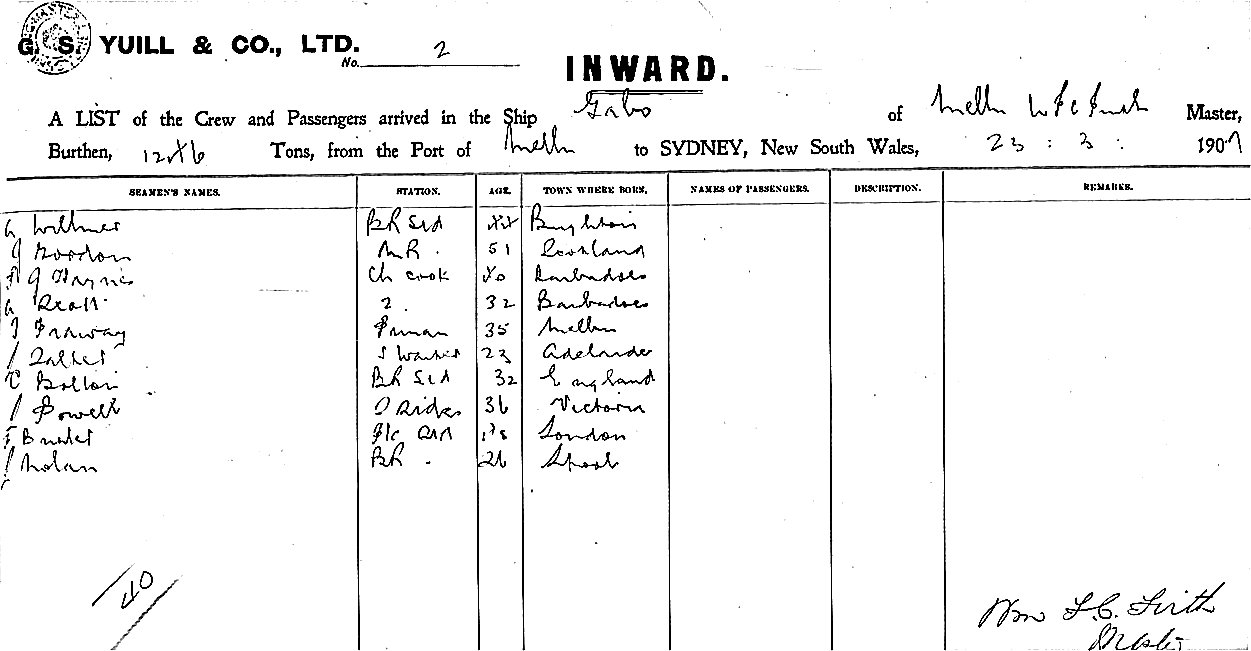 G. S. YUILL & CO., LTD.
No. 2
INWARD.
A LIST of the Crew and Passengers arrived in the Ship Gabo of Melbn W F C Firth Master,
Burthen, Tons, from the Port of Melbn to SYDNEY, New South Wales, 23 : 3 : 1907
SEAMEN'S NAMES. STATION. AGE. TOWN WHERE BORN. NAMES OF PASSENGERS. DESCRIPTION. REMARKS.
G Willmer BR Std Brighton
J Gordon 51 Scotland
J Haynes Ch cook 40 Barbadoes
G Scott 2 32 Barbadoes
Fraway Fman 35 Melbn
23 Adelaide
C Bolton BR Std 32 England
Powell 36 Victoria
London
Nolan BR 26 Lpool
40
Wm F. C. Firth
Master